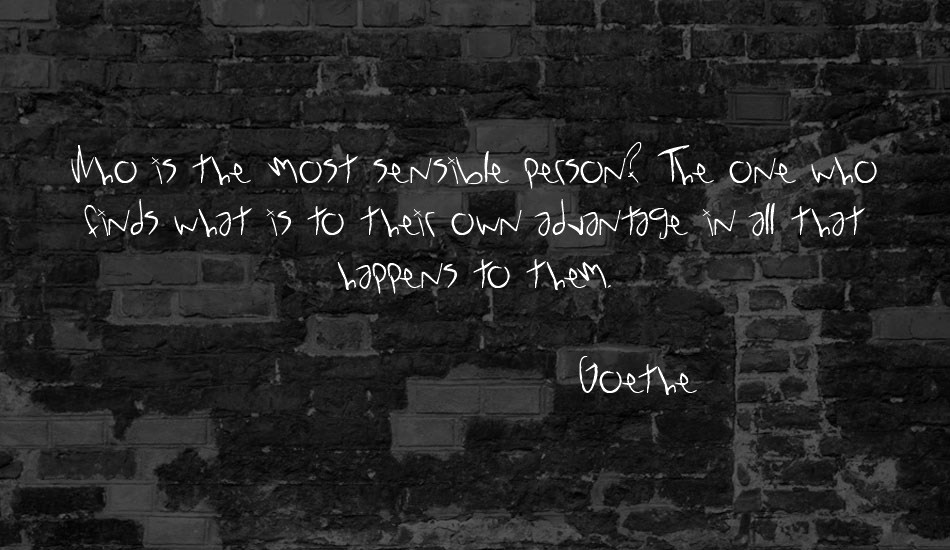 Who is the most sensible person? The one who
finds what is to their own advantage in all that
happens to them.
Goethe